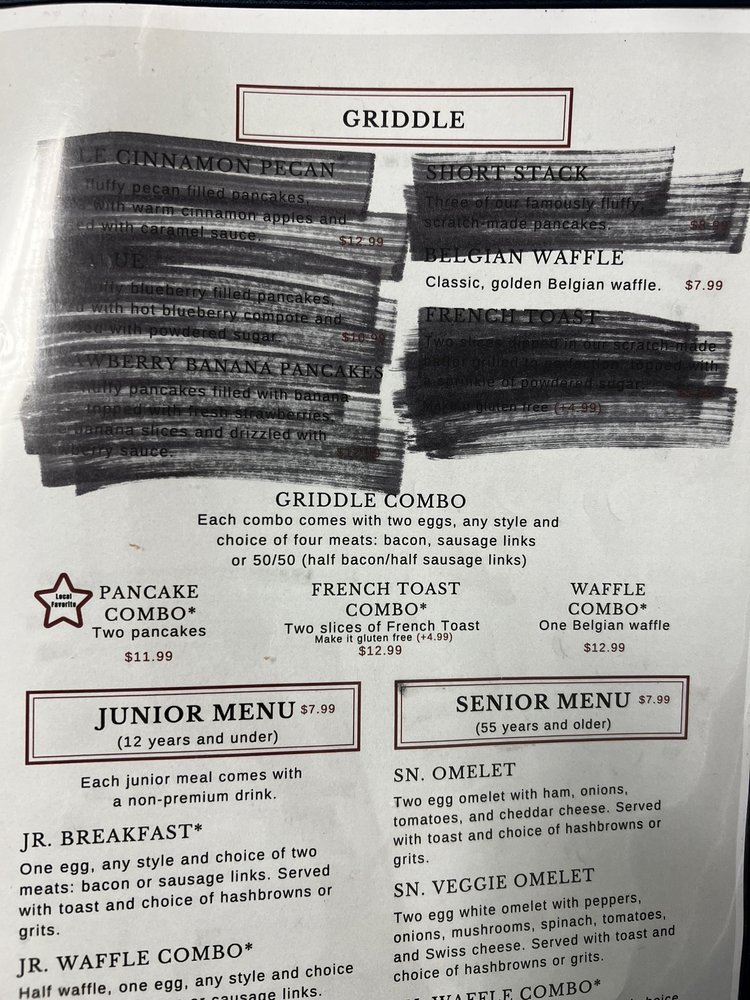 GRIDDLE
LE CINNAMON PECAN
fluffy pecan filled pancakes,
with warm cinnamon apples and
with caramel sauce.
$12.99
fluffy blueberry filled pancakes,
with hot blueberry compote and
with powdered sugar.
BERRY BANANA PANCAKES
fluffy pancakes filled with banana
topped with fresh strawberries,
banana slices and drizzled with
sauce.
SHORT STACK
Three of our famously fluffy,
scratch-made pancakes.
BELGIAN WAFFLE
Classic, golden Belgian waffle. $7.99
FRENCH TOAST
Two slices dipped in our scratch-made
batter grilled to perfection, topped with
a sprinkle of powdered sugar.
Make it gluten free (+4.99)
GRIDDLE COMBO
Each combo comes with two eggs, any style and
choice of four meats: bacon, sausage links
or 50/50 (half bacon/half sausage links)
Local
Favorite
PANCAKE
COMBO*
Two pancakes
$11.99
FRENCH TOAST
COMBO*
Two slices of French Toast
Make it gluten free (+4.99)
$12.99
WAFFLE
COMBO*
One Belgian waffle
$12.99
JUNIOR MENU $7.99
(12 years and under)
Each junior meal comes with
a non-premium drink.
JR. BREAKFAST*
One egg, any style and choice of two
meats: bacon or sausage links. Served
with toast and choice of hashbrowns or
grits.
JR. WAFFLE COMBO*
Half waffle, one egg, any style and choice
or sausage links.
SENIOR MENU $7.99
(55 years and older)
SN. OMELET
Two egg omelet with ham, onions,
tomatoes, and cheddar cheese. Served
with toast and choice of hashbrowns or
grits.
SN. VEGGIE OMELET
Two egg white omelet with peppers,
onions, mushrooms, spinach, tomatoes,
and Swiss cheese. Served with toast and
choice of hashbrowns or grits.
WAFFLE COMBO*
choice